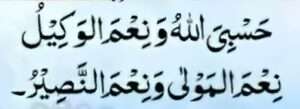 حَسْبِیَ اللهُ وَنِعْمَ الْوَکِیْلُ
نِعْمَ الْمَوْلٰی وَنِعْمَ النَّصِیْرُ۔